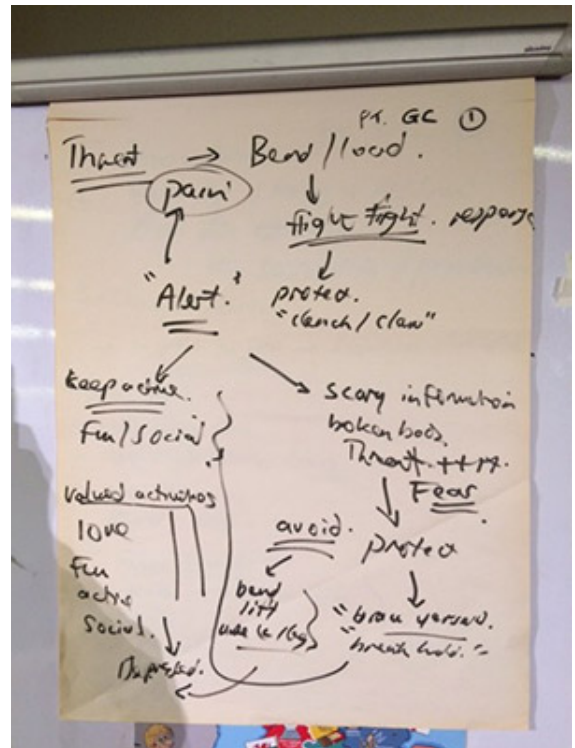 PT. GC ①
Threat → Bend / load.
pain
flight fight. response
"Alert."
protect.
"clench / claw"
keep active.
Fun / Social
scary information
broken body.
Threat ++
Fear
valued activities
love
Fun
active
Social.
avoid.
protect
bend
lift
"brace yourself.
"breath hold."
Depressed.